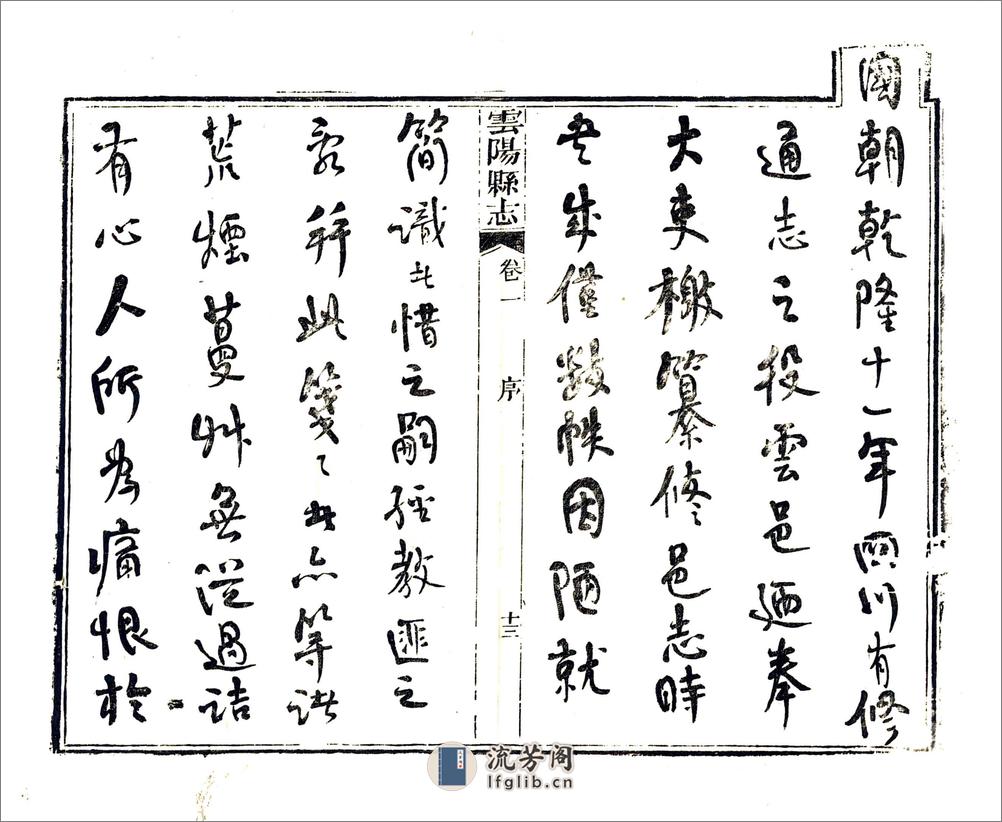 國朝乾隆十一年四川有修
通志之役雲邑廼奉
大吏檄纂修邑志時
書成僅數帙因陋就
雲陽縣志 卷一 序 十三
簡識者惜之嗣經教匪之
亂并此箋々者亦等諸
荒煙蔓艸無從過詰
有心人所為痛恨於
流芳阁
lfglib.cn